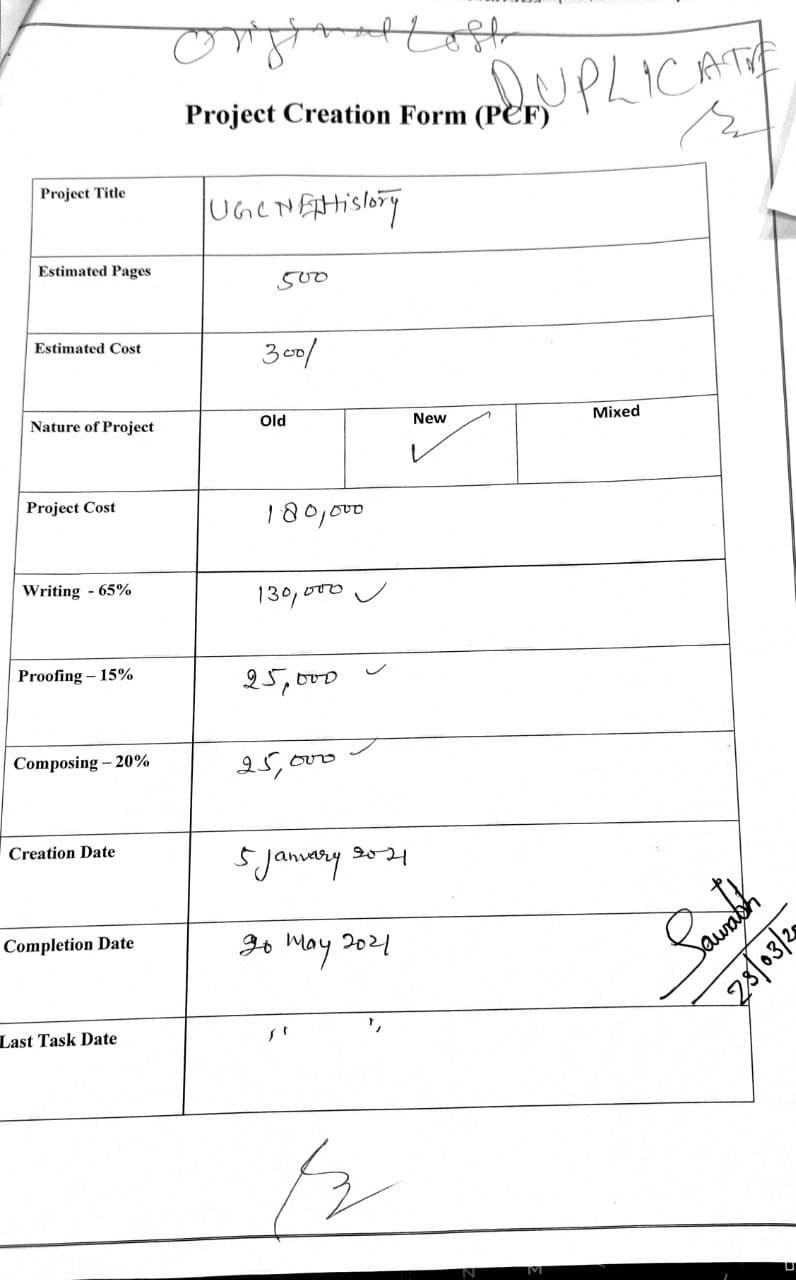 Original Lost
DUPLICATE
Project Creation Form (PCF)
Project Title UGC NET History
Estimated Pages 500
Estimated Cost 300/
Nature of Project Old New ✓ Mixed
Project Cost 180,000
Writing - 65% 130,000 ✓
Proofing – 15% 25,000 ✓
Composing – 20% 25,000 ✓
Creation Date 5 January 2021
Completion Date May 2021
Last Task Date " "
Saurabh